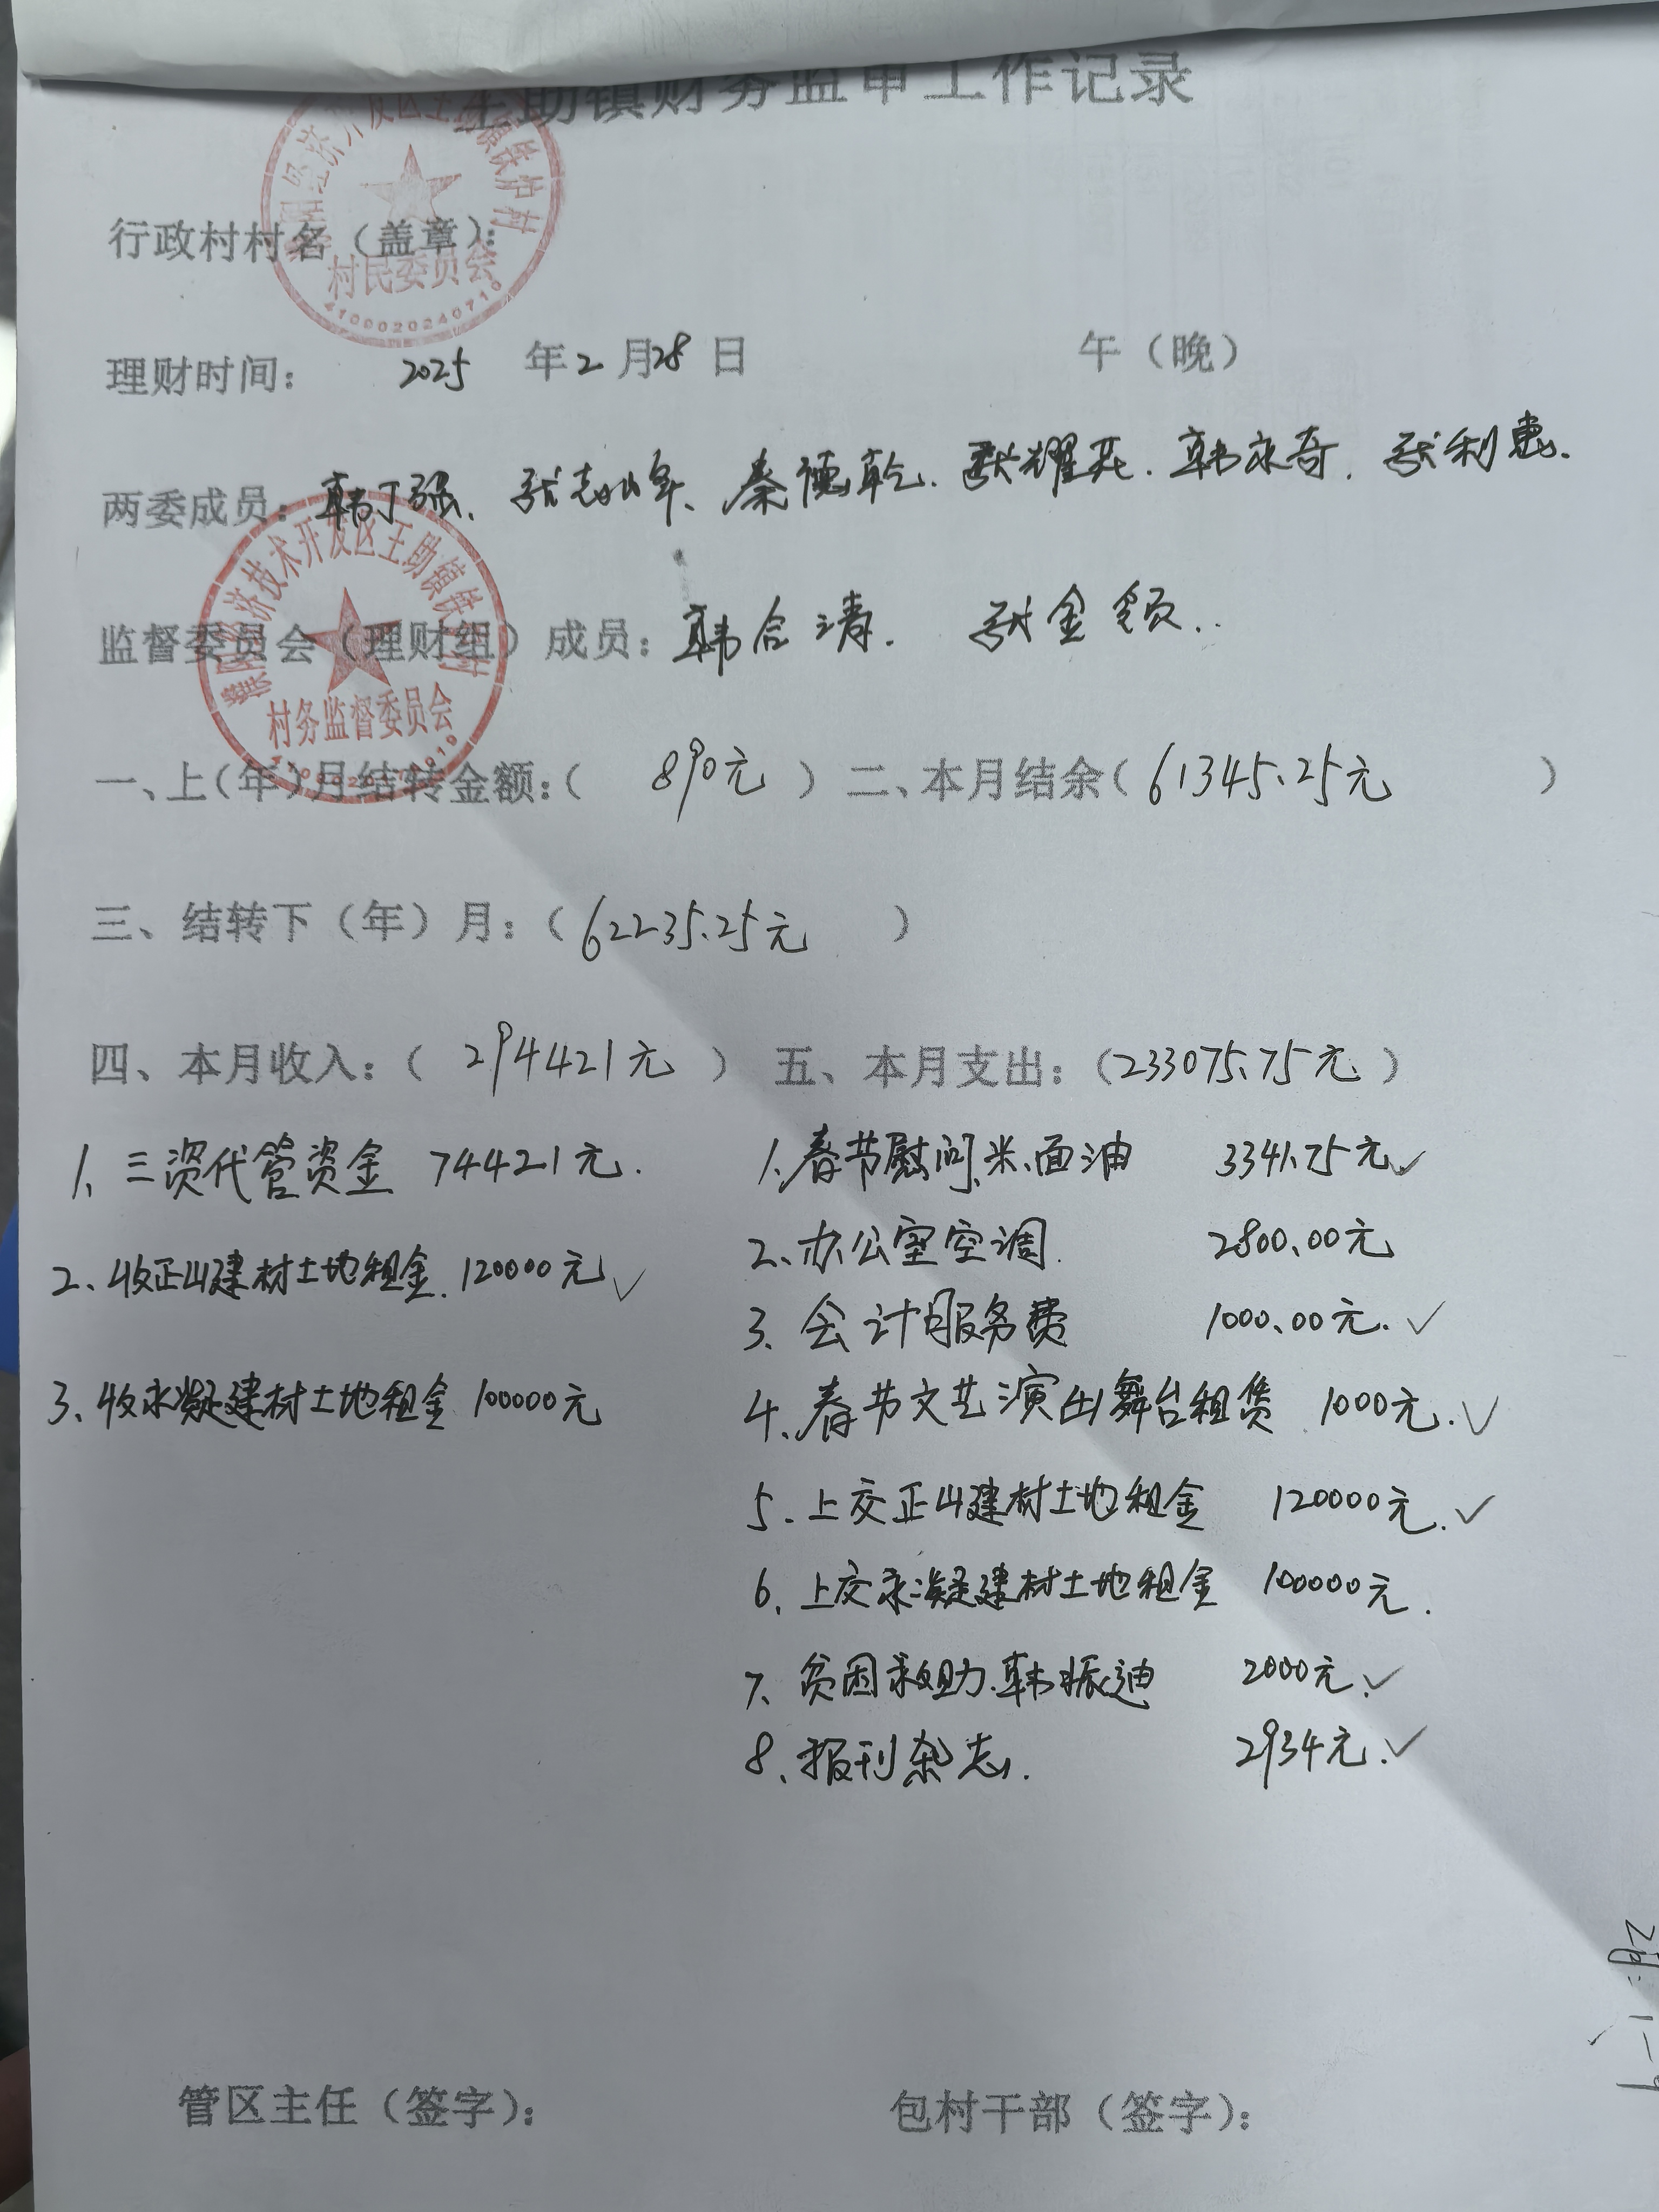 王助镇财务监审工作记录
行政村村名（盖章）：
村民委员会
4100020240710
理财时间： 2025 年 2 月 28 日 午（晚）
两委成员：韩丁强、张志山年、秦德乾. 张耀兵. 韩永奇. 张利惠.
濮阳经济技术开发区王助镇铁炉村
监督委员会（理财组）成员：韩合清. 张金领..
村务监督委员会
一、上（年）月结转金额：（ 890元 ） 二、本月结余（ 61345.25元 ）
三、结转下（年）月：（ 62235.25元 ）
四、本月收入：（ 294421元 ） 五、本月支出：（233075.75元 ）
1、三资代管资金 74421元. 1.春节慰问.米、面油 3341.75元✓
2、收正山建材土地租金. 120000元✓ 2、办公室空调. 2800.00元
3. 会计服务费 1000.00元.✓
3、收永凝建材土地租金 100000元 4、春节文艺演出舞台租赁 1000元.✓
5. 上交正山建材土地租金 120000元.✓
6. 上交永凝建材土地租金 100000元.
7、贫困救助.韩振迪 2000元.✓
8、报刊杂志. 2934元.✓
管区主任（签字）： 包村干部（签字）：